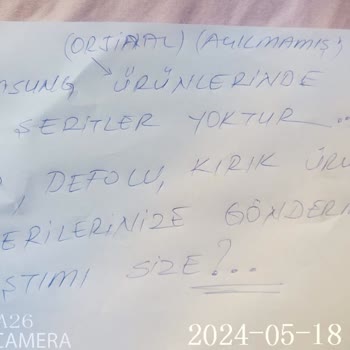 (ORJİNAL) (AÇILMAMIŞ)
ASUNG, ÜRÜNLERİNDE
ŞERİTLER YOKTUR...
DEFOLU, KIRIK ÜRÜ
ERİLERİNİZE GÖNDERİ
ŞTIMI SİZE?...
A26
CAMERA
2024-05-18